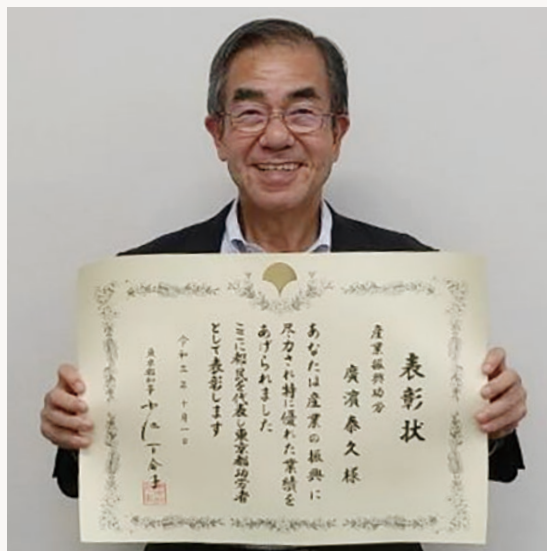 表彰状
産業振興功労
廣濱泰久様
あなたは産業の振興に
尽力され特に優れた業績を
あげられました
ここに都民を代表し東京都功労者
として表彰します
令和三年十月一日
東京都知事 小池百合子